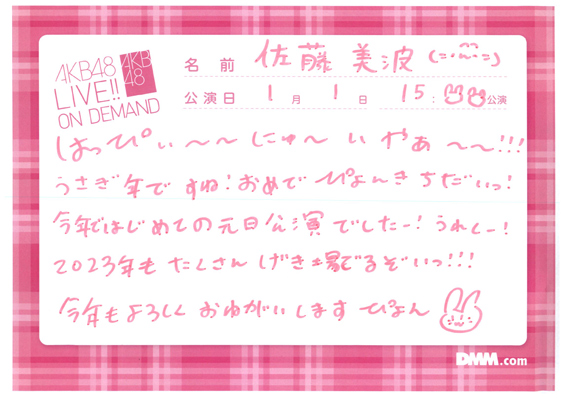 AKB48
LIVE!!
ON DEMAND
AKB
48
名前 佐藤美波
公演日 1月1日 15:00公演
はっぴぃ〜〜にゅ〜いやぁ〜〜!!!
うさぎ年ですね!おめでぴょんきちだいっ!
今年はじめての元日公演でしたー!うれしー!
2023年もたくさんげき場でるぞいっ!!!
今年もよろしくおねがいしますぴょん
DMM.com